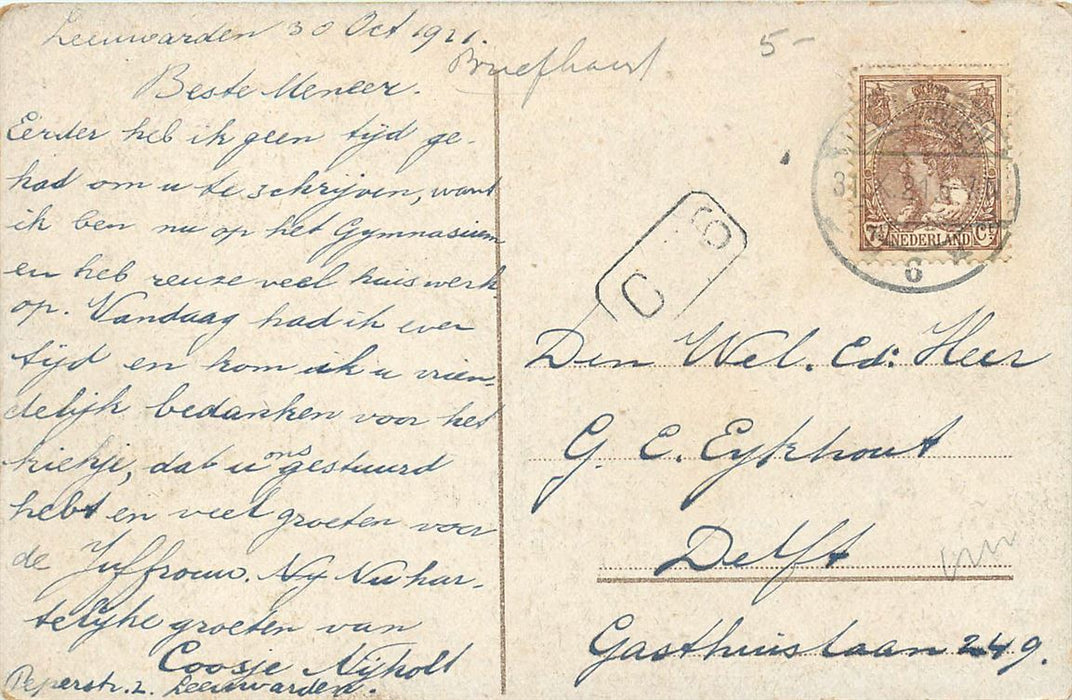 Leeuwarden 30 Oct 1921.
Briefkaart
5-
Beste Meneer.
Eerder heb ik geen tijd ge-
had om u te schrijven, want
ik ben nu op het Gymnasium
en heb reuze veel huiswerk
op. Vandaag had ik even
tijd en kom ik u vrien-
delijk bedanken voor het
kiekje, dat u ons gestuurd
hebt en veel groeten voor
de Juffrouw. Nu har-
telijke groeten van
Coosje Nijholt
Peperstr. 2. Leeuwarden.
6
7½ NEDERLAND Ct
Den Wel. Ed: Heer
G. E. Eykhout
Delft
Gasthuislaan 249.